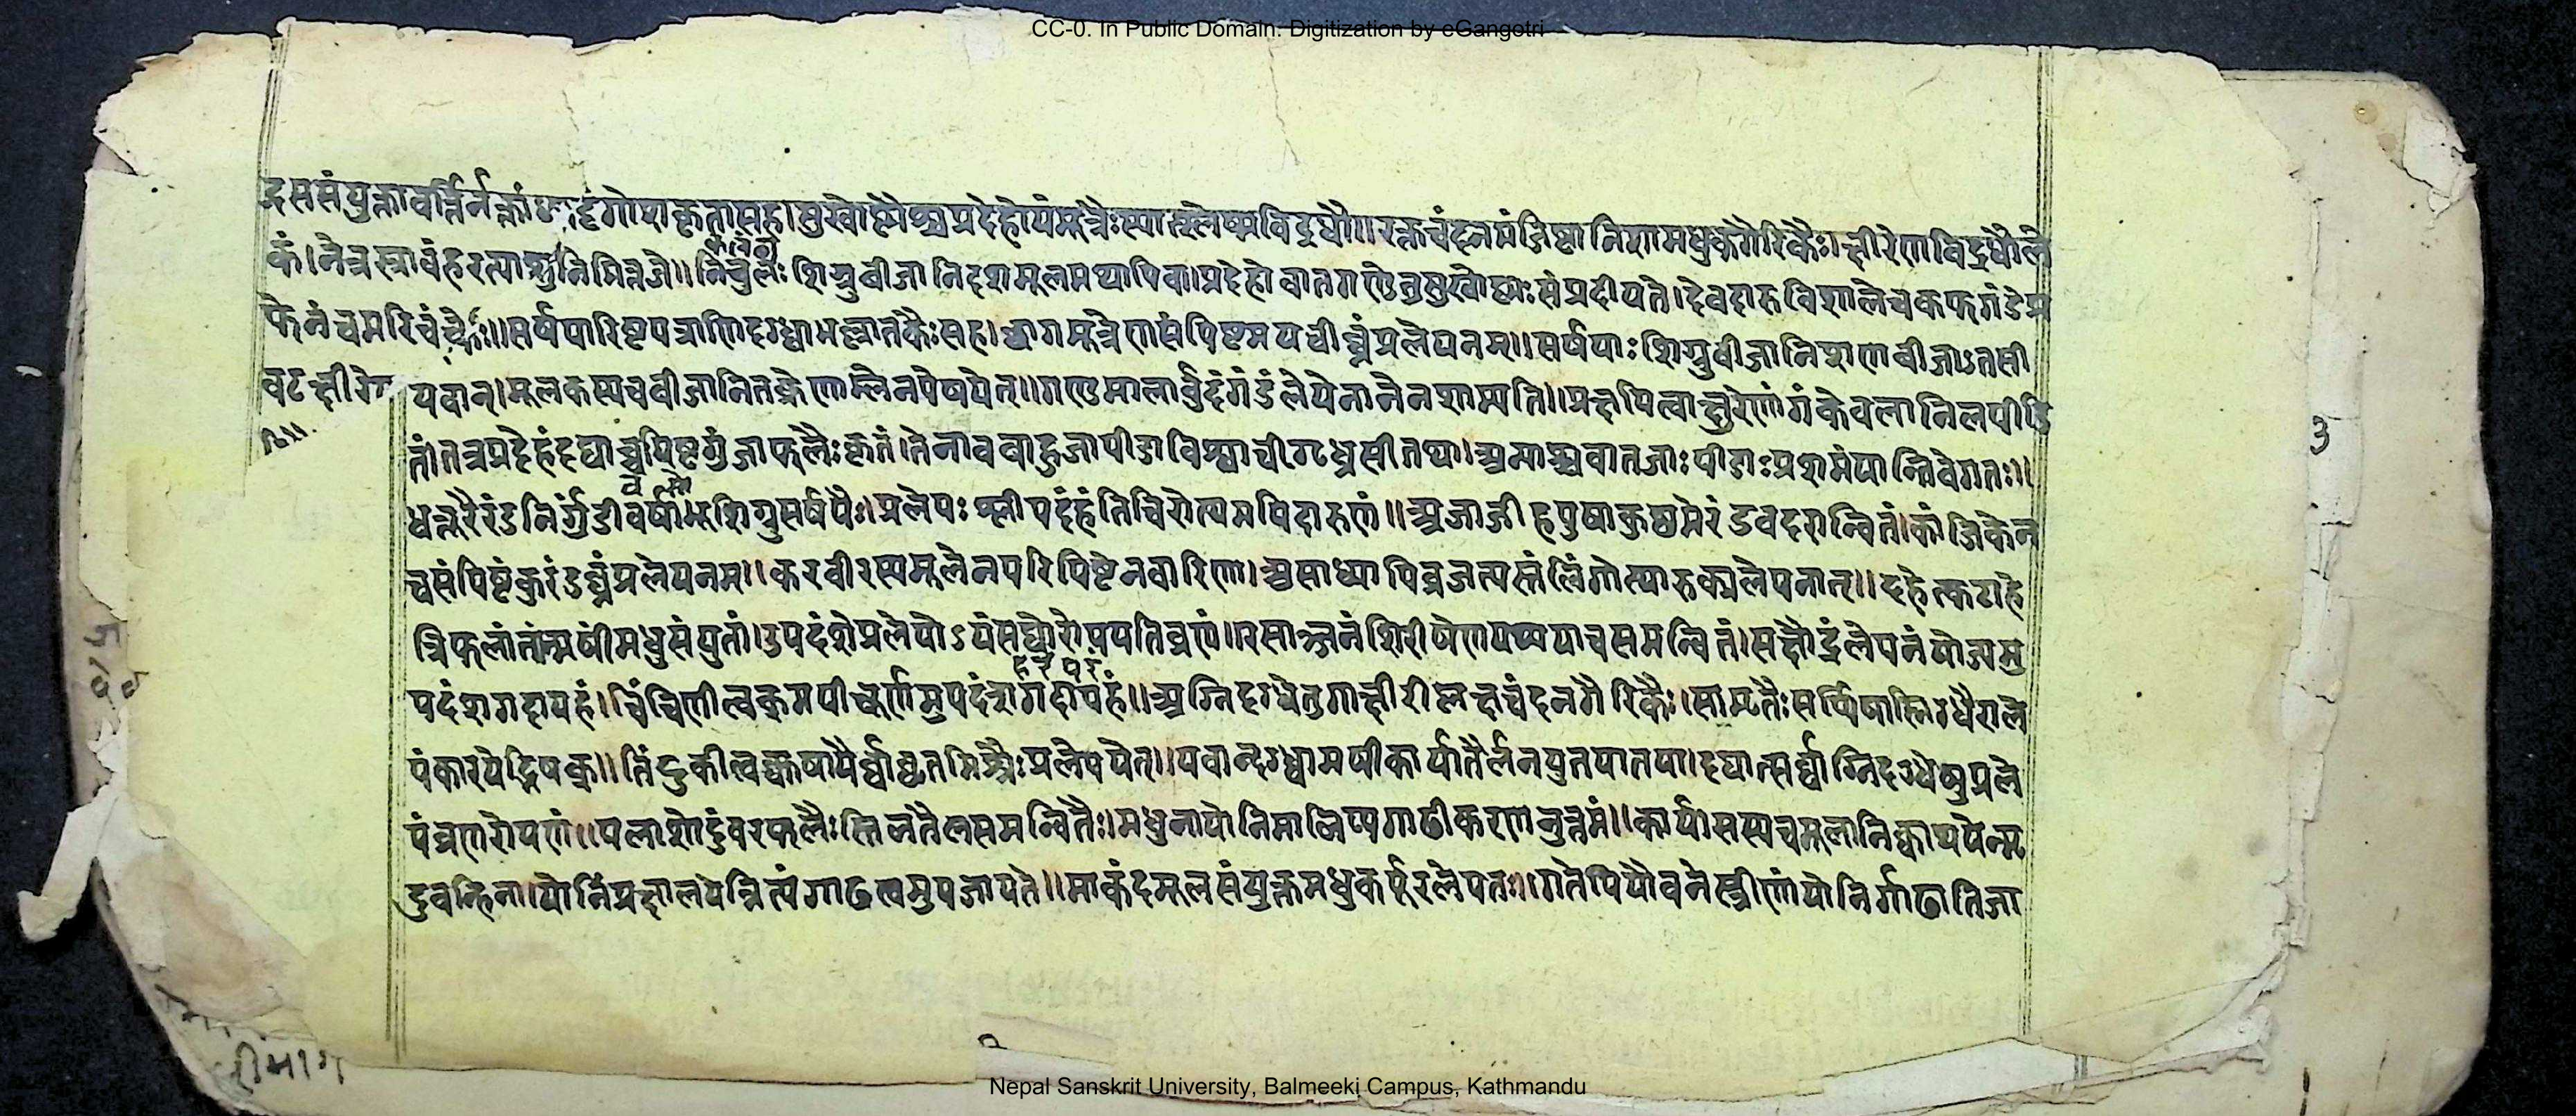 CC-0. In Public Domain. Digitization by eGangotri
सुखोष्मैश्च प्रदेहोयंमूत्रैःस्यात्श्लेष्मविद्रधौ॥रक्तचंदनमंजिष्ठानिशामधुकगैरिकैः।क्षीरेणविद्रधौले
कं।नेत्रस्त्रावंहरत्याशु शिग्रुबीजानिदशमूलमथापिवा।प्रदेहोवातगण्डेनुसुखोष्णःसंप्रदीयते।देवदारुविशालेचकफगंडेप्र
फेनंचमरिचं सर्षपारिष्टपत्राणिदग्ध्वाभल्लातकैःसह।छागमूत्रेणसंपिष्टमपचीघ्नंप्रलेपनम्॥सर्षपाःशिग्रुबीजानिशणबीजाऽतसी
वटक्षीरे यवान्।मूलकस्यचबीजानितक्रेणाम्लेनपेषयेत्॥गण्डमालार्बुदंगंडंलेपेनानेनशाम्यति॥ केवलानिलपीडि
तं।तत्रप्रदेहंदद्याच्चपिष्टंगुंजाफलैःकृतं।तेनावबाहुजापीडाविश्वाचीगृध्रसीतथा।अन्याश्चवातजाःपीडाःप्रशमंयान्तिवेगतः॥
धत्तूरैरंडनिर्गुंडीवर्षाभूशिग्रुसर्षपैः।प्रलेपःश्लीपदंहंतिचिरोत्थमपिदारुणं॥अजाजीहपुषाकुष्ठमेरंडवदरान्वितं।कांजिकेन
चसंपिष्टंकुरंडघ्नंप्रलेपनम्॥करवीरस्यमूलेनपरिपिष्टेनवारिणा।असाध्यापिव्रजत्यस्तंलिंगोत्थारुक्प्रलेपनात्॥दहेत्कटाहे
त्रिफलां मधुसंयुतां।उपदंशेप्रलेपोऽयंसद्योरोपयतिव्रणं॥रसाञ्जनंशिरीषेणपथ्ययाचसमन्वितं।सक्षौद्रंलेपनंयोज्यमु
पदंशगदापहं। अग्निदग्धेतुगाक्षीरीप्लक्षचंदनगैरिकैः।सामृतैःसर्पिषास्निग्धैराले
पंकारयेद्भिषक्॥तिंदुकीत्वक्कषायैर्वाघृतमिश्रैःप्रलेपयेत्॥यवान्दग्ध्वामषीकार्यातैलेनयुतयातया।दद्यात्सर्वाग्निदग्धेषुप्रले
पंव्रणरोपणं॥पलाशोदुंबरफलैःस्तिलतैलसमन्वितैः।मधुनायोनिमालिप्यगाढीकरणमुत्तमं॥ निक्वाथयेन्मृ
दुवन्हिना।योनिंप्रक्षालयेन्नित्यंगाढत्वमुपजायते॥माकंदमूलसंयुक्तमधुकर्पूरलेपतः॥गतेपियौवनेस्त्रीणांयोनिर्गाढातिजा
3
Nepal Sanskrit University, Balmeeki Campus, Kathmandu